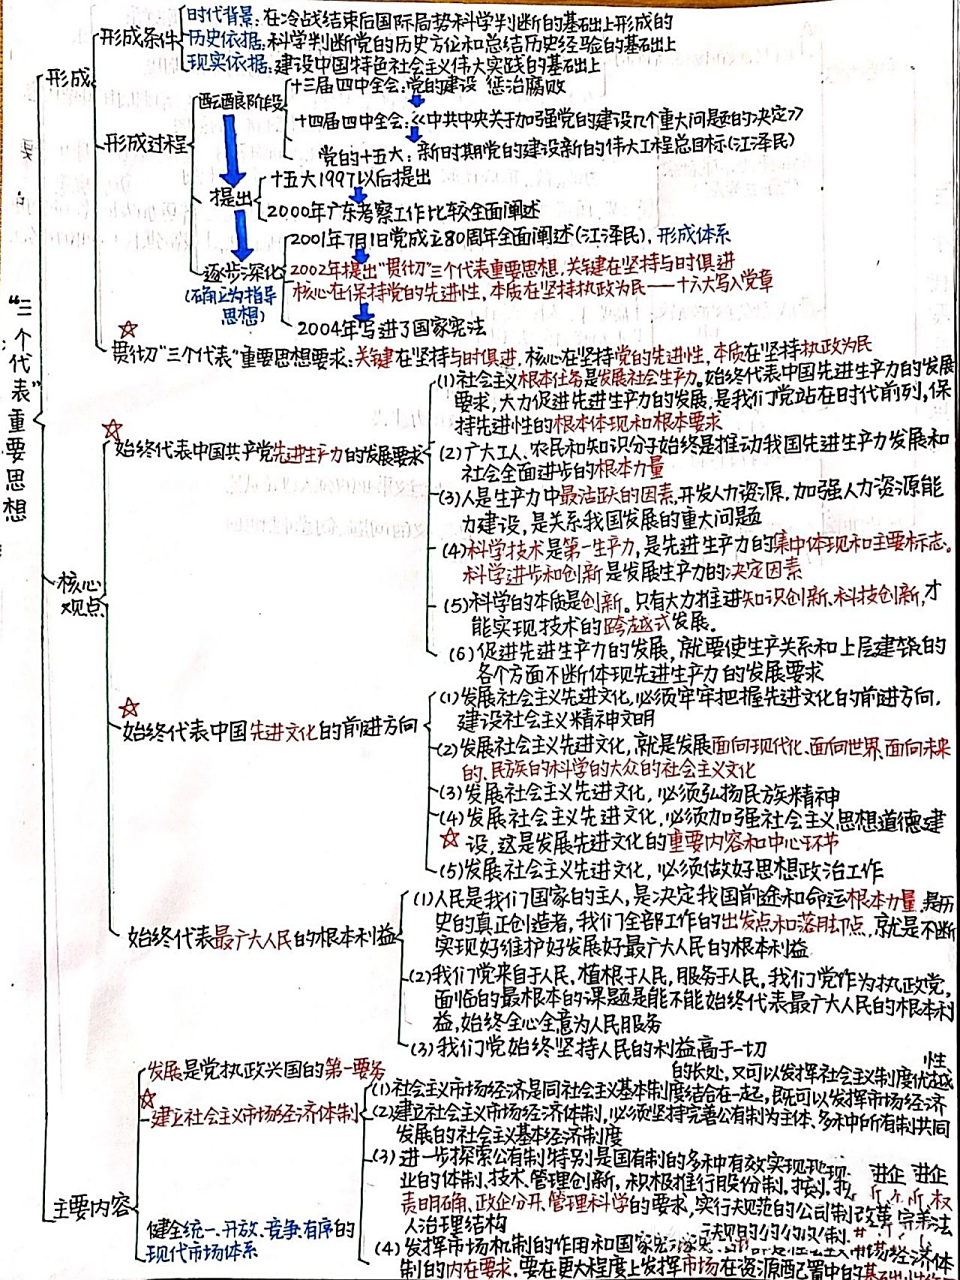 "三个代表"重要思想
形成
形成条件
时代背景:在冷战结束后国际局势科学判断的基础上形成的
历史依据:科学判断党的历史方位和总结历史经验的基础上
现实依据:建设中国特色社会主义伟大实践的基础上
形成过程
酝酿阶段
十三届四中全会:党的建设 惩治腐败
十四届四中全会:《中共中央关于加强党的建设几个重大问题的决定》
党的十五大:新时期党的建设新的伟大工程总目标(江泽民)
提出
十五大1997以后提出
2000年广东考察工作比较全面阐述
逐步深化
(确立为指导
思想)
2001年7月1日党成立80周年全面阐述(江泽民),形成体系
2002年提出"贯彻"三个代表重要思想,关键在坚持与时俱进
核心在保持党的先进性,本质在坚持执政为民——十六大写入党章
2004年写进了国家宪法
贯彻"三个代表"重要思想要求:关键在坚持与时俱进,核心在坚持党的先进性,本质在坚持执政为民
核心
观点
始终代表中国共产党先进生产力的发展要求
(1)社会主义根本任务是发展社会生产力。始终代表中国先进生产力的发展
要求,大力促进先进生产力的发展,是我们党站在时代前列,保
持先进性的根本体现和根本要求
(2)广大工人、农民和知识分子始终是推动我国先进生产力发展和
社会全面进步的根本力量
(3)人是生产力中最活跃的因素,开发人力资源,加强人力资源能
力建设,是关系我国发展的重大问题
(4)科学技术是第一生产力,是先进生产力的集中体现和主要标志。
科学进步和创新是发展生产力的决定因素
(5)科学的本质是创新。只有大力推进知识创新、科技创新,才
能实现技术的跨越式发展。
(6)促进先进生产力的发展,就要使生产关系和上层建筑的
各个方面不断体现先进生产力的发展要求
始终代表中国先进文化的前进方向
(1)发展社会主义先进文化,必须牢牢把握先进文化的前进方向,
建设社会主义精神文明
(2)发展社会主义先进文化,就是发展面向现代化、面向世界、面向未来
的,民族的科学的大众的社会主义文化
(3)发展社会主义先进文化,必须弘扬民族精神
(4)发展社会主义先进文化,必须加强社会主义思想道德建
设,这是发展先进文化的重要内容和中心环节
(5)发展社会主义先进文化,必须做好思想政治工作
始终代表最广大人民的根本利益
(1)人民是我们国家的主人,是决定我国前途和命运根本力量,是历
史的真正创造者,我们全部工作的出发点和落脚点,就是不断
实现好维护好发展好最广大人民的根本利益
(2)我们党来自于人民,植根于人民,服务于人民,我们党作为执政党,
面临的最根本的课题是能不能始终代表最广大人民的根本利
益,始终全心全意为人民服务
(3)我们党始终坚持人民的利益高于一切
主要内容
发展是党执政兴国的第一要务
建立社会主义市场经济体制
性
的长处,又可以发挥社会主义制度优越
(1)社会主义市场经济是同社会主义基本制度结合在一起,既可以发挥市场经济
(2)建立社会主义市场经济体制,必须坚持完善公有制为主体、多种所有制共同
发展的社会主义基本经济制度
(3)进一步探索公有制特别是国有制的多种有效实现 进企 进企
业的体制、技术、管理创新,积极推行股份制,
责明确、政企分开、管理科学的要求,实行规范的公司制改革,完善法
人治理结构
健全统一、开放、竞争、有序的
现代市场体系
(4)发挥市场机制的作用和国家 市场经济体
制的内在要求,要在更大程度上发挥市场在资源配置中的基础